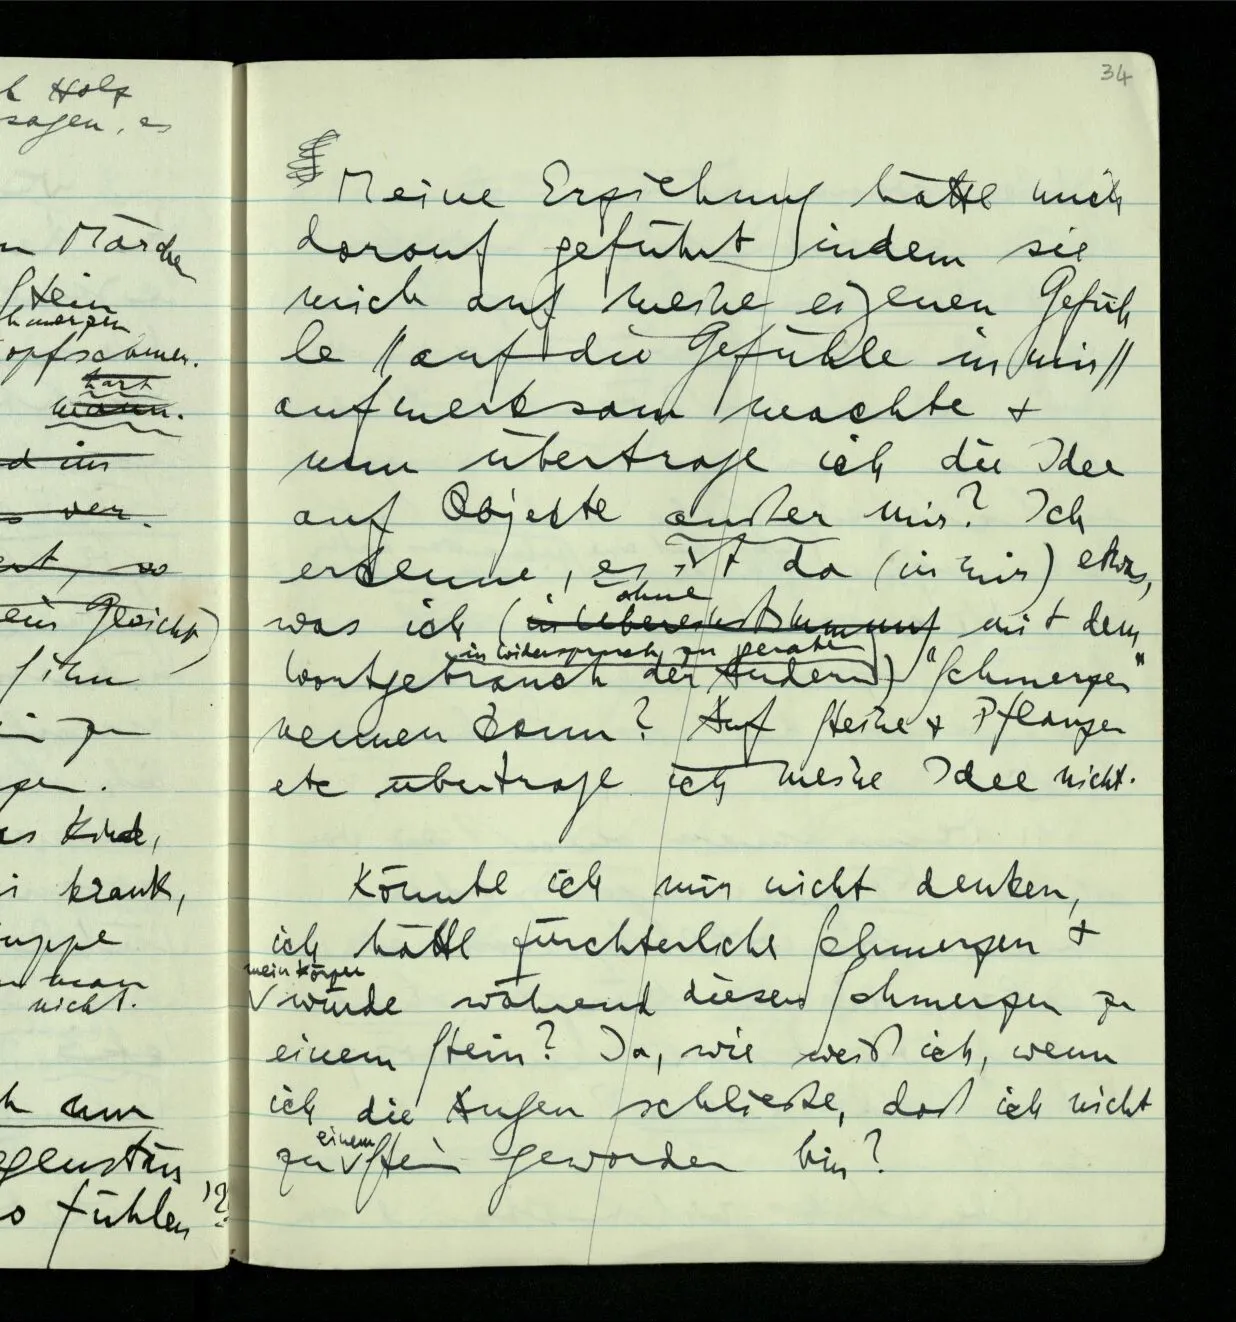 Holz
sagen, es
Märchen
Stein
Schmerzen
Kopfschmer.
hart
wann.
ver.
ein Gesicht)
ihm
zu
Kinde,
krank,
Puppe
man
nicht.
nur
fühlen"?
34
Meine Erziehung hätte mich
darauf geführt indem sie
mich auf meine eigenen Gefüh
le // auf die Gefühle in mir //
aufmerksam machte +
nun übertrage ich die Idee
auf Objekte außer mir? Ich
erkenne, es ist da (in mir) etwas,
ohne
was ich (in Uebereinstimmung mit dem
in Widerspruch zu geraten
Wortgebrauch der Andern) "Schmerzen"
nennen kann? Auf Steine + Pflanzen
etc übertrage ich meine Idee nicht.
Könnte ich mir nicht denken,
ich hätte fürchterliche Schmerzen +
mein Körper
würde während dieser Schmerzen zu
einem Stein? Ja, wie weiß ich, wenn
ich die Augen schließe, daß ich nicht
einem
zu Stein geworden bin?